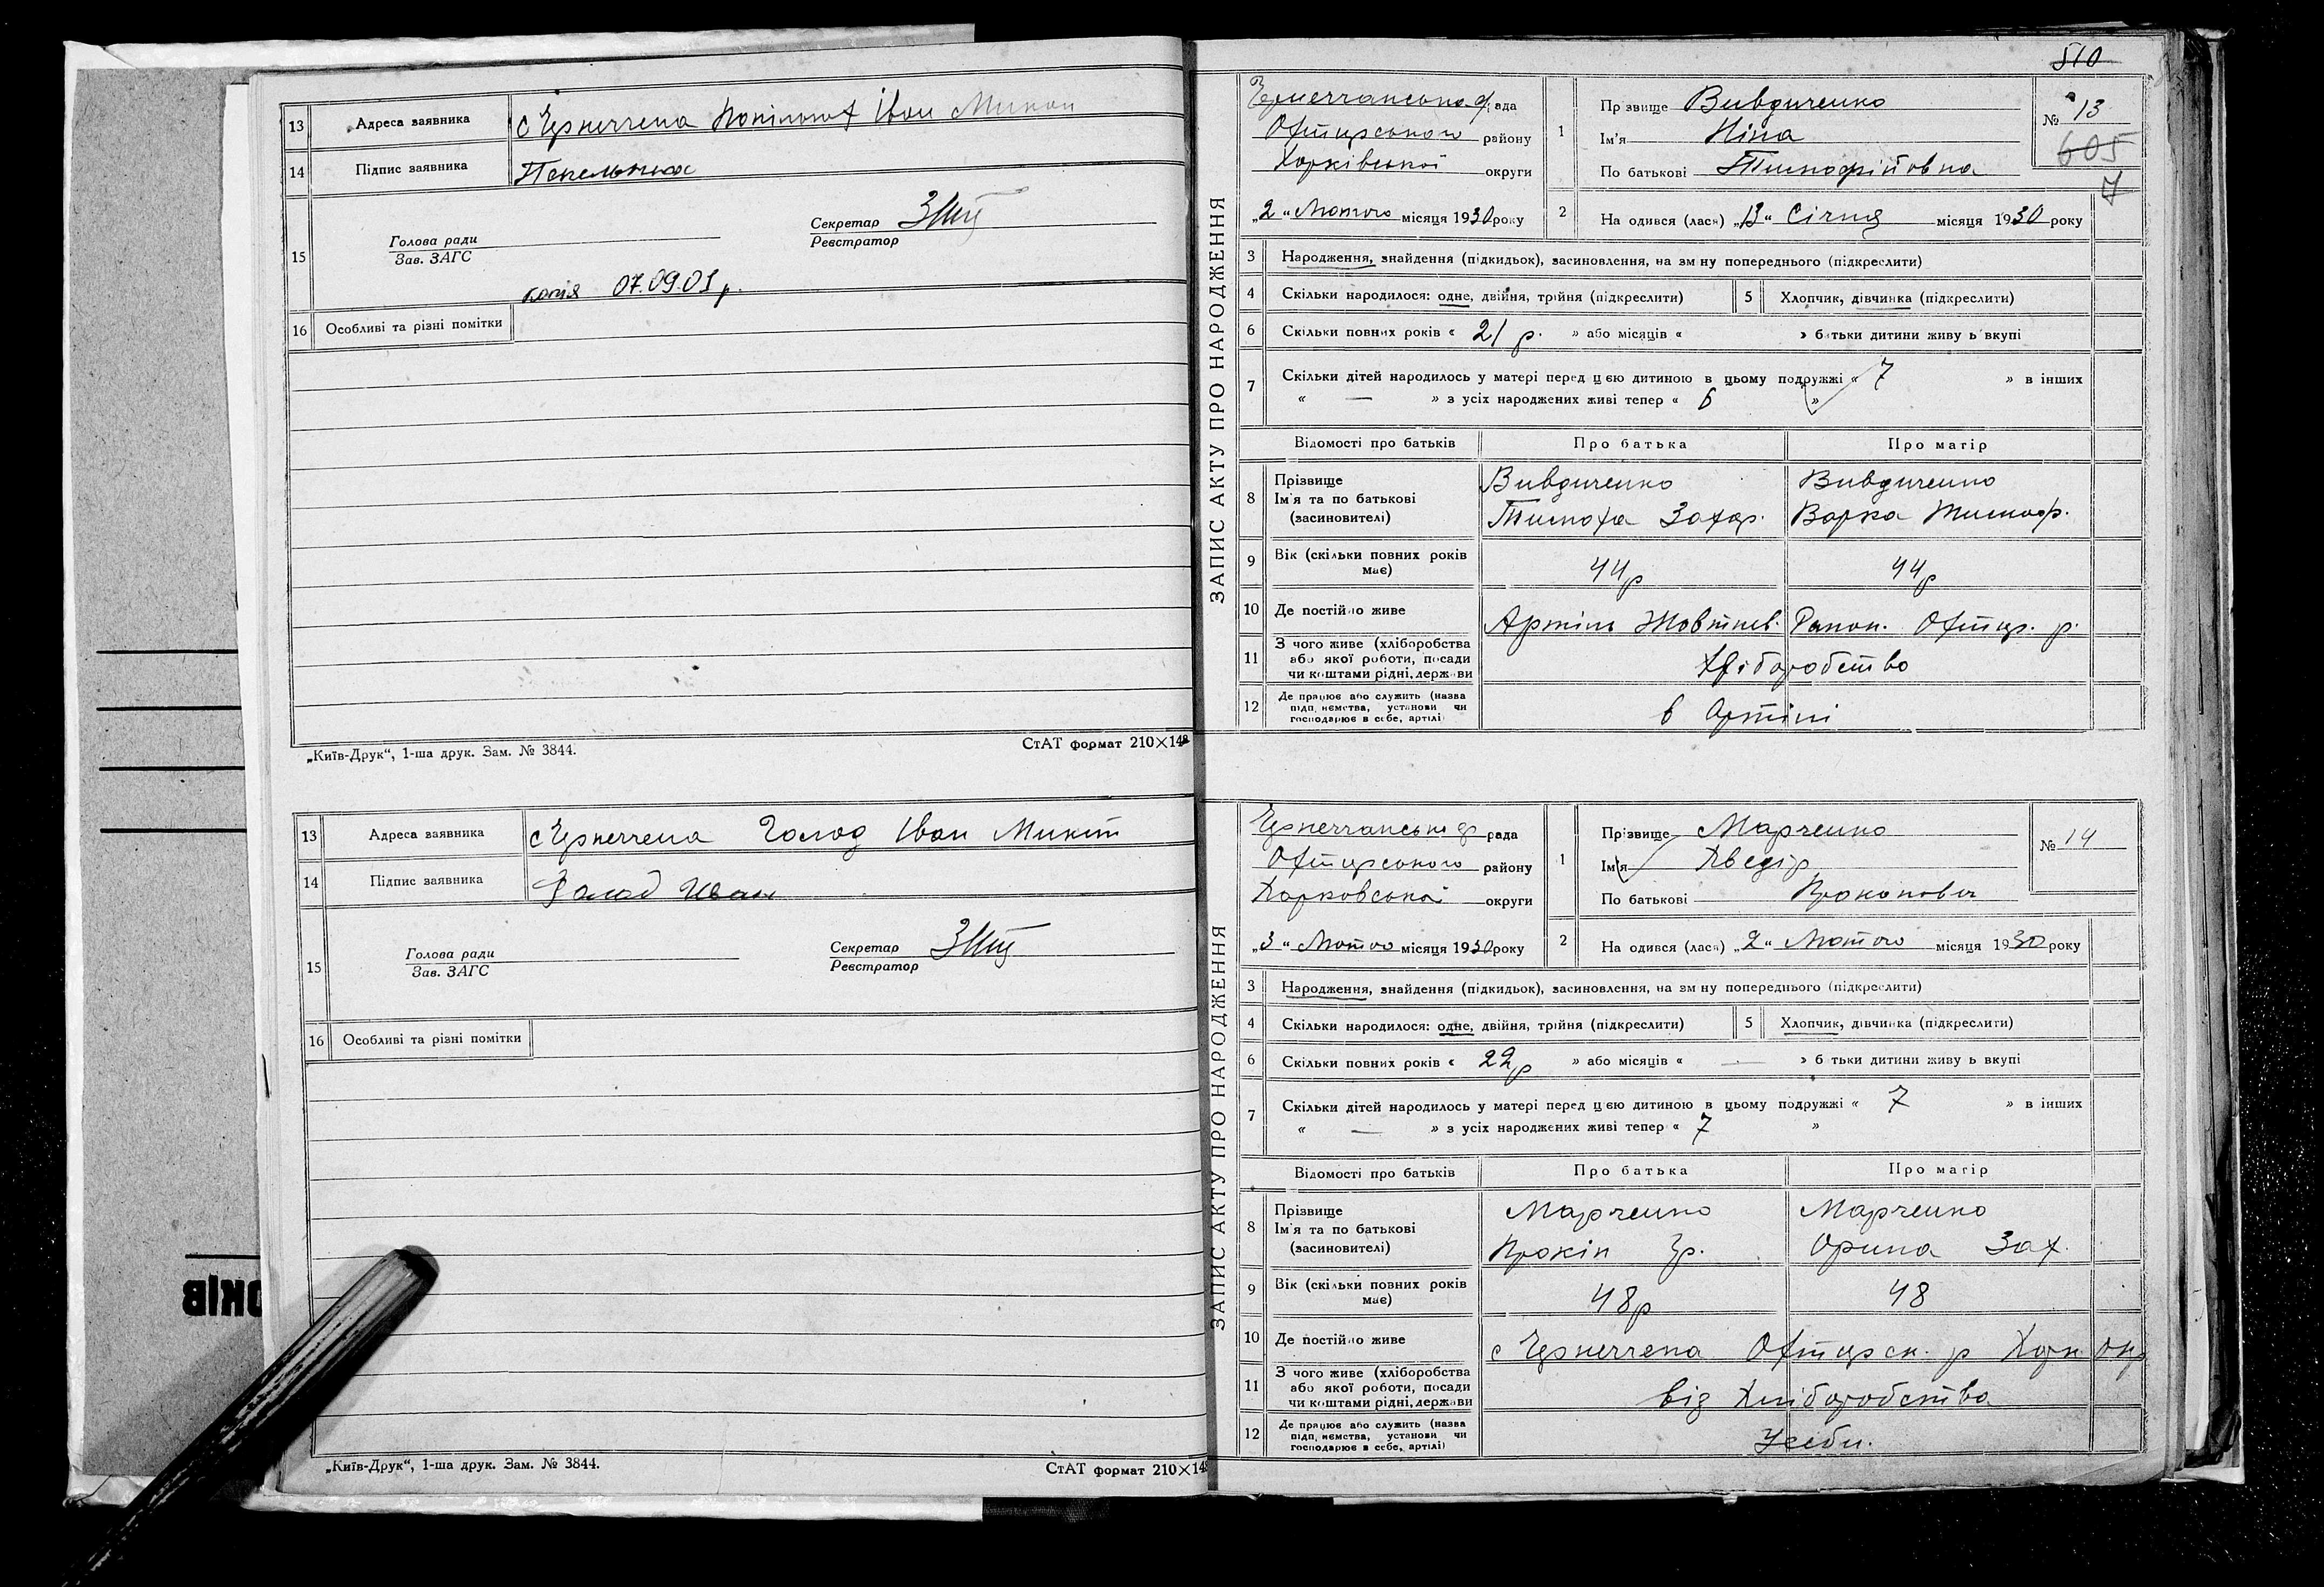 13 Адреса заявника с Чернеччена Іван Микол
14 Підпис заявника
15 Голова ради Секретар
Зав. ЗАГС Реєстратор
копія 07.09.01 р.
16 Особливі та різні помітки
„Київ-Друк“, 1-ша друк. Зам. № 3844. СтАТ формат 210×148
13 Адреса заявника с Чернеччена Голод Іван Микит
14 Підпис заявника Голод Иван
15 Голова ради Секретар
Зав. ЗАГС Реєстратор
16 Особливі та різні помітки
„Київ-Друк“, 1-ша друк. Зам. № 3844. СтАТ формат 210×148
ОКІВ
510
ЗАПИС АКТУ ПРО НАРОДЖЕННЯ
Чернеччанська рада
Охтирського району
Харківської округи
„2“ Лютого місяця 1930 року
1 Прізвище Вивдиченко
Ім'я Ніна
По батькові Тимофійовна
№ 13
605
7
2 Народився (лася) „13“ Січня місяця 1930 року
3 Народження, знайдення (підкидьок), засиновлення, на зміну попереднього (підкреслити)
4 Скільки народилося: одне, двійня, трійня (підкреслити) 5 Хлопчик, дівчинка (підкреслити)
6 Скільки повних років « 21 р. » або місяців « » батьки дитини живуть вкупі
7 Скільки дітей народилось у матері перед цією дитиною в цьому подружжі « 7 » в інших
« — » з усіх народжених живі тепер « 6 »
Відомості про батьків Про батька Про матір
8 Прізвище Ім'я та по батькові (засновителі)
Вивдиченко Вивдиченко
Тимоха Захар. Варка Тимоф.
9 Вік (скільки повних років має) 44р 44р
10 Де постійно живе Артіль Жовтнев. Охтир. р.
11 З чого живе (хліборобства
або якої роботи, посади
чи коштами рідні, держави Хліборобство
12 Де працює або служить (назва
підприємства, установи чи
господарює в себе, артілі) в Артілі
ЗАПИС АКТУ ПРО НАРОДЖЕННЯ
Чернеччанська рада
Охтирського району
Харковської округи
„3“ Лютого місяця 1930 року
1 Прізвище Марченко
Ім'я Хведір
По батькові Прокопович
№ 14
2 Народився (лася) „2“ Лютого місяця 1930 року
3 Народження, знайдення (підкидьок), засиновлення, на зміну попереднього (підкреслити)
4 Скільки народилося: одне, двійня, трійня (підкреслити) 5 Хлопчик, дівчинка (підкреслити)
6 Скільки повних років « 22р » або місяців « — » батьки дитини живуть вкупі
7 Скільки дітей народилось у матері перед цією дитиною в цьому подружжі « 7 » в інших
« — » з усіх народжених живі тепер « 7 »
Відомості про батьків Про батька Про матір
8 Прізвище Ім'я та по батькові (засиновителі)
Марченко Марченко
Прокіп Гр. Орина Зах.
9 Вік (скільки повних років має) 48р 48
10 Де постійно живе с Чернеччена Охтирск. р Харк окр
11 З чого живе (хліборобства
або якої роботи, посади
чи коштами рідні, держави від Хліборобства
12 Де працює або служить (назва
підприємства, установи чи
господарює в себе, артілі) У себи.